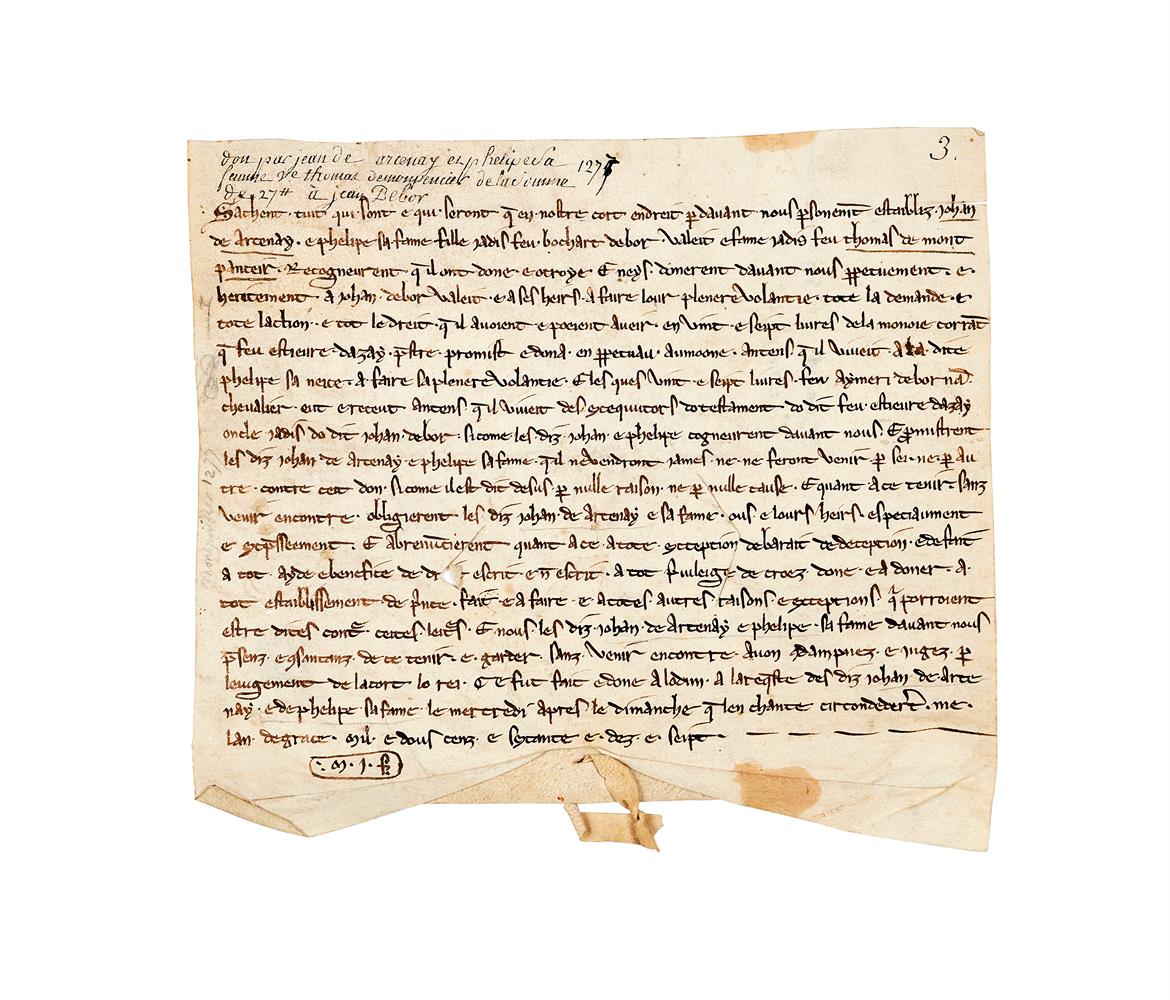 don par jean de arcenay et phelipe sa
femme ve thomas demonpencier de la somme
de 27tt à jean Bebor
1277
3.
Sachent · tuit qui · sont e qui · seront q̄ en nostre cort endreit p̱davant nous p̱sonemt establiz · johan
de Artenay · e phelipe sa fame fille jadis feu · bochart debor valeit e fame jadis feu thomas de mont
panceir · Recogneurent q̄ il ont done · e otroye E neys · donerent davant nous p̱petuement · e ·
heritement · a johan · debor valeit · e a ses heirs · a faire lour plenere volantie · tote la demande · e
tote laction · e tot le dreit · q̄ il avoient e poeient aveir · en vint · e seipt livres de la monoie corrāt
q̄ feu estievre · dazay · p̄stre · promist e dona · en p̱petuau · aumoone · antens · q̄ il viveit · a la · dite
phelipe sa neice · a faire sa plenere volantie · E les ques vint e seipt livres · feu aymeri debor
chevalier · eut e receut antens q̄ il viveit des execquitors do testament do dit feu · estievre dazay
oncle jadis do dit johan · debor · si come les diz · johan e phelipe cogneurent davant nous · E p̱mistrent
les diz johan de Artenay · e phelipe sa fame · q̄ il ne vendront james · ne · ne feront venir p̱ sei · ne · p̱ au
tre · contre cest don · si come il est dit desus p̱ nulle raison · ne p̱ nulle cause · E quant a ce tenir · sanz
venir encontre · obligierent les diz johan · de Artenay e sa fame · ous · e lours heirs · especiaument
e exp̄sseement · E abrenūcierent quant a ce · a tote · exception de barait de deception · e de fait
a tot ayde e benefice de escrit · e nō escrit · a tot p̄vileige de croez done · e a doner · a ·
tot establissement de p̄nce · fait · e a faire · e a totes autres raisons e exceptions q̄ porroient
estre dites cont̄ · cestes lett̄s · E nous les diz · johan · de Artenay e phelipe · sa fame davant nous
p̄senz · e 9sintanz · de ce tenir · e · garder · sanz venir encontre · Avon 9dampnez · e jugez · p̱
le jugement de la cort lo rei · Ce fut fait e done a lodun · a la req̄ste des diz johan · de Arte
nay · e de phelipe · sa fame · le mercredi apres le dimanche q̄ len chante circondedert̄ · me ·
lan · de grace · Mil · e dous cenz · e sexante e · dez · e · seipt ·